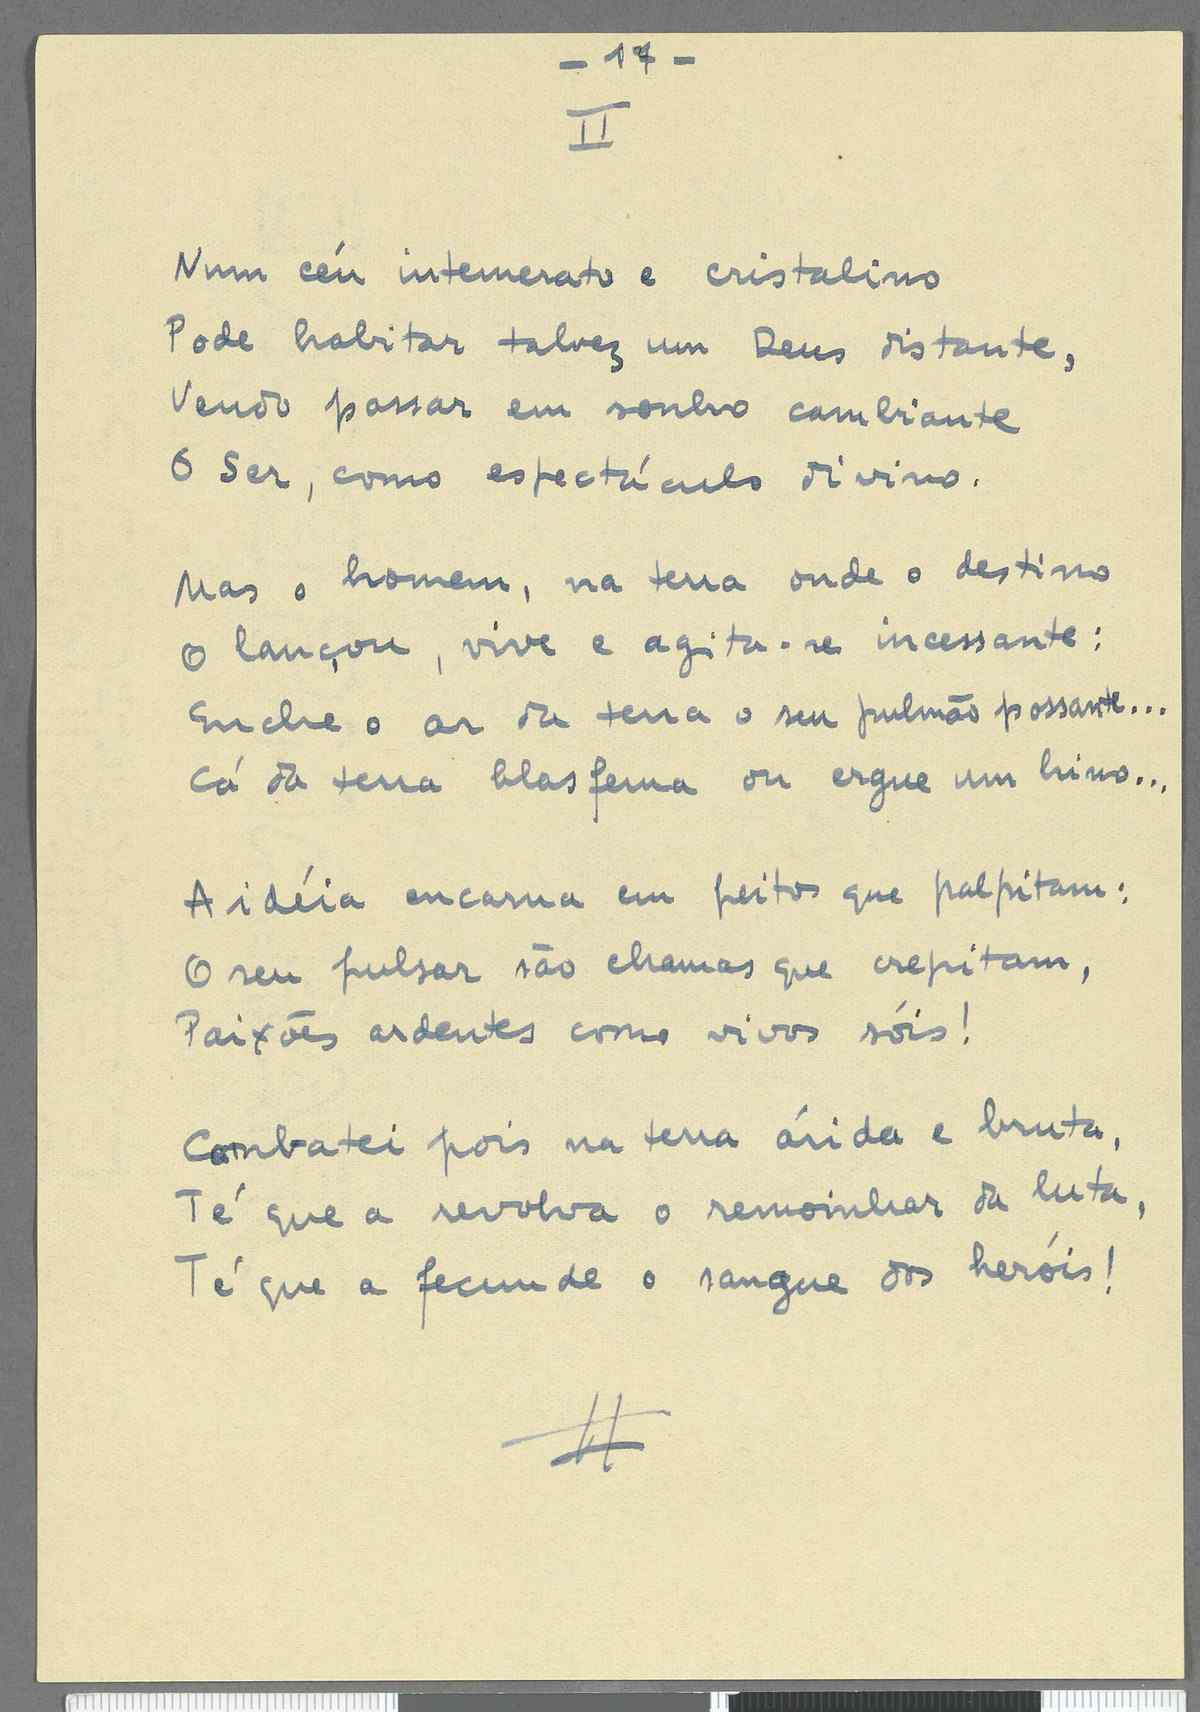 - 17 -
II
Num céu intemerato e cristalino
Pode habitar talvez um Deus distante,
Vendo passar em sonho cambiante
O Ser, como espectáculo divino.
Mas o homem, na terra onde o destino
O lançou, vive e agita-se incessante:
Enche o ar da terra o seu pulmão possante...
Cá da terra blasfema ou ergue um hino...
A idéia encarna em peitos que palpitam:
O seu pulsar são chamas que crepitam,
Paixões ardentes como vivos sóis!
Combatei pois na terra árida e bruta,
Té que a revolva o remoinhar da luta,
Té que a fecunde o sangue dos heróis!